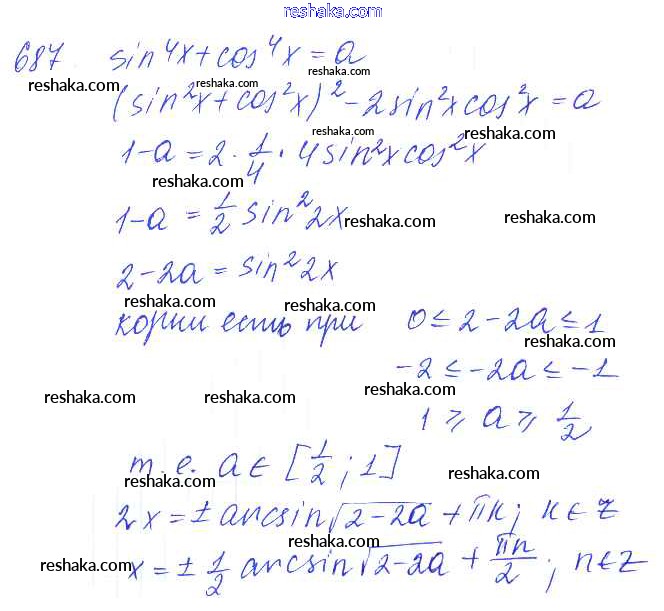 reshaka.com
687 sin⁴x + cos⁴x = a
reshaka.com reshaka.com reshaka.com
(sin²x + cos²x)² - 2sin²xcos²x = a
reshaka.com reshaka.com
1-a = 2 · 1/4 · 4sin²xcos²x
reshaka.com
1-a = 1/2 sin²2x
reshaka.com reshaka.com
2-2a = sin²2x
reshaka.com reshaka.com
корни есть при 0 ≤ 2-2a ≤ 1
reshaka.com
-2 ≤ -2a ≤ -1
reshaka.com reshaka.com reshaka.com
1 ≥ a ≥ 1/2
т. е. a ∈ [1/2 ; 1]
reshaka.com
2x = ± arcsin√(2-2a) + πk; k ∈ z
reshaka.com reshaka.com
reshaka.com
x = ± 1/2 arcsin√(2-2a) + πn/2 ; n ∈ z
reshaka.com reshaka.com